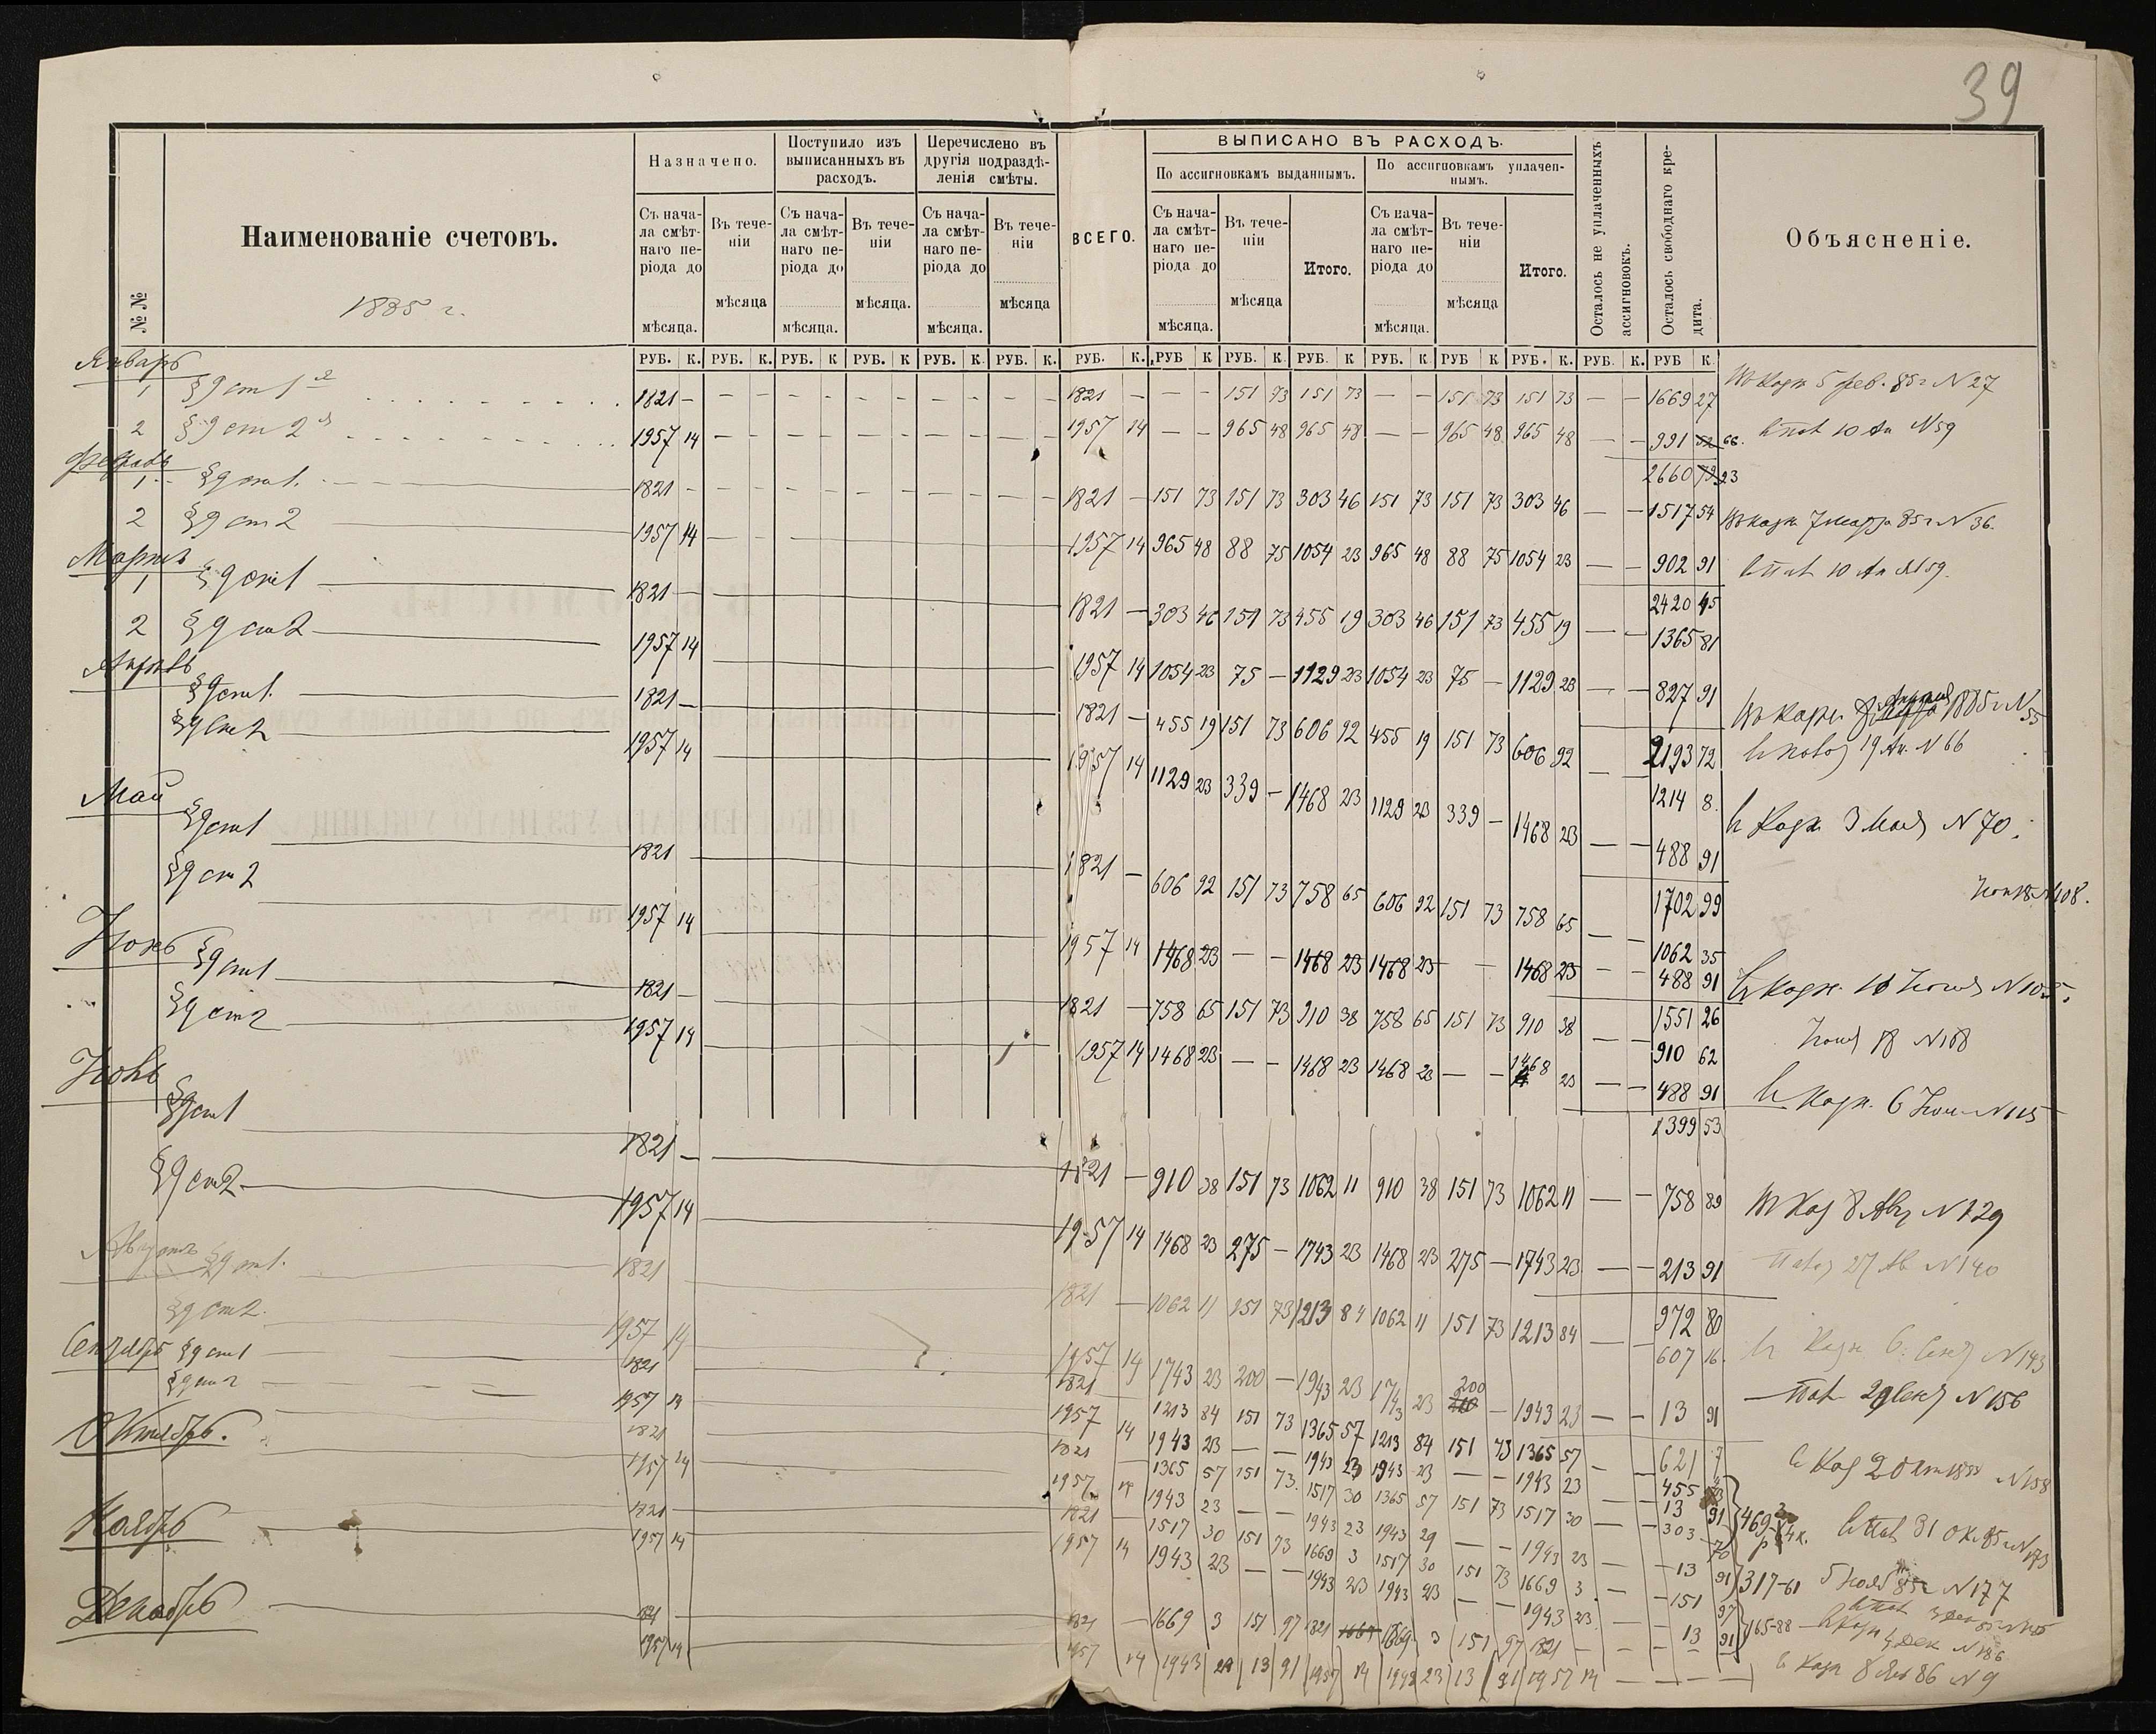 39
№ №
Наименованіе счетовъ.
1885 г.
Назначено.
Поступило изъ выписанныхъ въ расходъ.
Перечислено въ другія подраздѣленія смѣты.
ВСЕГО.
ВЫПИСАНО ВЪ РАСХОДЪ.
По ассигновкамъ выданнымъ.
По ассигновкамъ уплаченнымъ.
Осталось не уплаченныхъ ассигновокъ.
Осталось свободнаго кредита.
Объясненіе.
Съ начала смѣтнаго періода до мѣсяца.
Въ теченіи мѣсяца
Съ начала смѣтнаго періода до мѣсяца.
Въ теченіи мѣсяца.
Съ начала смѣтнаго періода до мѣсяца.
Въ теченіи мѣсяца
Съ начала смѣтнаго періода до мѣсяца.
Въ теченіи мѣсяца
Итого.
Съ начала смѣтнаго періода до мѣсяца.
Въ теченіи мѣсяца
Итого.
РУБ. К. РУБ. К. РУБ. К РУБ. К РУБ. К РУБ. К. РУБ. К. РУБ К РУБ. К РУБ. К РУБ. К РУБ К РУБ. К. РУБ К. РУБ К
Январь
1 §9 ст 1 1821 — 1821 — — — 151 73 151 73 — — 151 73 151 73 — — 1669 27 5 фев. 85 г N 27
2 §9 ст 2 1957 14 1957 14 — — 965 48 965 48 — — 965 48 965 48 — — 991 66. 10 Ап N 59
2660 23
Февраль
1. §9 ст 1. 1821 — 1821 — 151 73 151 73 303 46 151 73 151 73 303 46 — — 1517 54 7 марта 85 г N 36.
2 §9 ст 2 1957 14 1957 14 965 48 88 75 1054 23 965 48 88 75 1054 23 — — 902 91 10 Ап N 59.
2420 45
Мартъ
1 §9 ст 1 1821 — 1821 — 303 46 151 73 455 19 303 46 151 73 455 19 — — 1365 81
2 §9 ст 2 1957 14 1957 14 1054 23 75 — 1129 23 1054 23 75 — 1129 23 — — 827 91 Апреля 1885 г N 55
2193 72 19 Ап. N 66
Апрель
§9 ст 1. 1821 — 1821 — 455 19 151 73 606 92 455 19 151 73 606 92 — — 1214 8.
§9 ст 2 1957 14 1957 14 1129 23 339 — 1468 23 1129 23 339 — 1468 23 — — 488 91 3 Мая N 70.
1702 99 N 108.
Май
§9 ст 1 1821 1821 — 606 92 151 73 758 65 606 92 151 73 758 65 — — 1062 35
§9 ст 2 1957 14 1957 14 1468 23 — — 1468 23 1468 23 — — 1468 23 — — 488 91
1551 26
Іюнь
§9 ст 1 1821 — 1821 — 758 65 151 73 910 38 758 65 151 73 910 38 — — 910 62
§9 ст 2 1957 14 1957 14 1468 23 — — 1468 23 1468 23 — — 1468 23 — — 488 91
1399 53
Іюль
§9 ст 1 1821 — 1821 — 910 38 151 73 1062 11 910 38 151 73 1062 11 — — 758 89 8 Авг N 129
§9 ст 2 1957 14 1957 14 1468 23 275 — 1743 23 1468 23 275 — 1743 23 — — 213 91 27 Ав N 140
972 80
Августъ
§9 ст 1. 1821 1821 — 1062 11 151 73 1213 84 1062 11 151 73 1213 84 — — 607 16. N 143
§9 ст 2. 1957 14 1957 14 1743 23 200 — 1943 23 1743 23 200 — 1943 23 — — 13 91 N 156
621 7
Сентябрь
§9 ст 1 1821 1821 1213 84 151 73 1365 57 1213 84 151 73 1365 57 — — 455 43 N 158
§9 ст 2 1957 14 1957 14 1943 23 — — 1943 23 1943 23 — — 1943 23 — — 13 91
Октябрь.
1821 1821 — 1365 57 151 73. 1517 30 1365 57 151 73 1517 30 — — 303 70
1957 14 1957 14 1943 23 — — 1943 23 1943 23 — — 1943 23 — — 13 91 317-61 N 177
Ноябрь
1821 1821 — 1517 30 151 73 1669 3 1517 30 151 73 1669 3. — — 151 97
1957 14 1957 14 1943 23 — — 1943 23 1943 23 — — 1943 23 — — 13 91 165-88 N 186
Декабрь
1821 — 1821 — 1669 3 151 97 1821 1669 3 151 97 1821 — — — —
1957 14 1957 14 1943 23 13 91 1957 14 1943 23 13 91 1957 14 — — — — 86 N 9